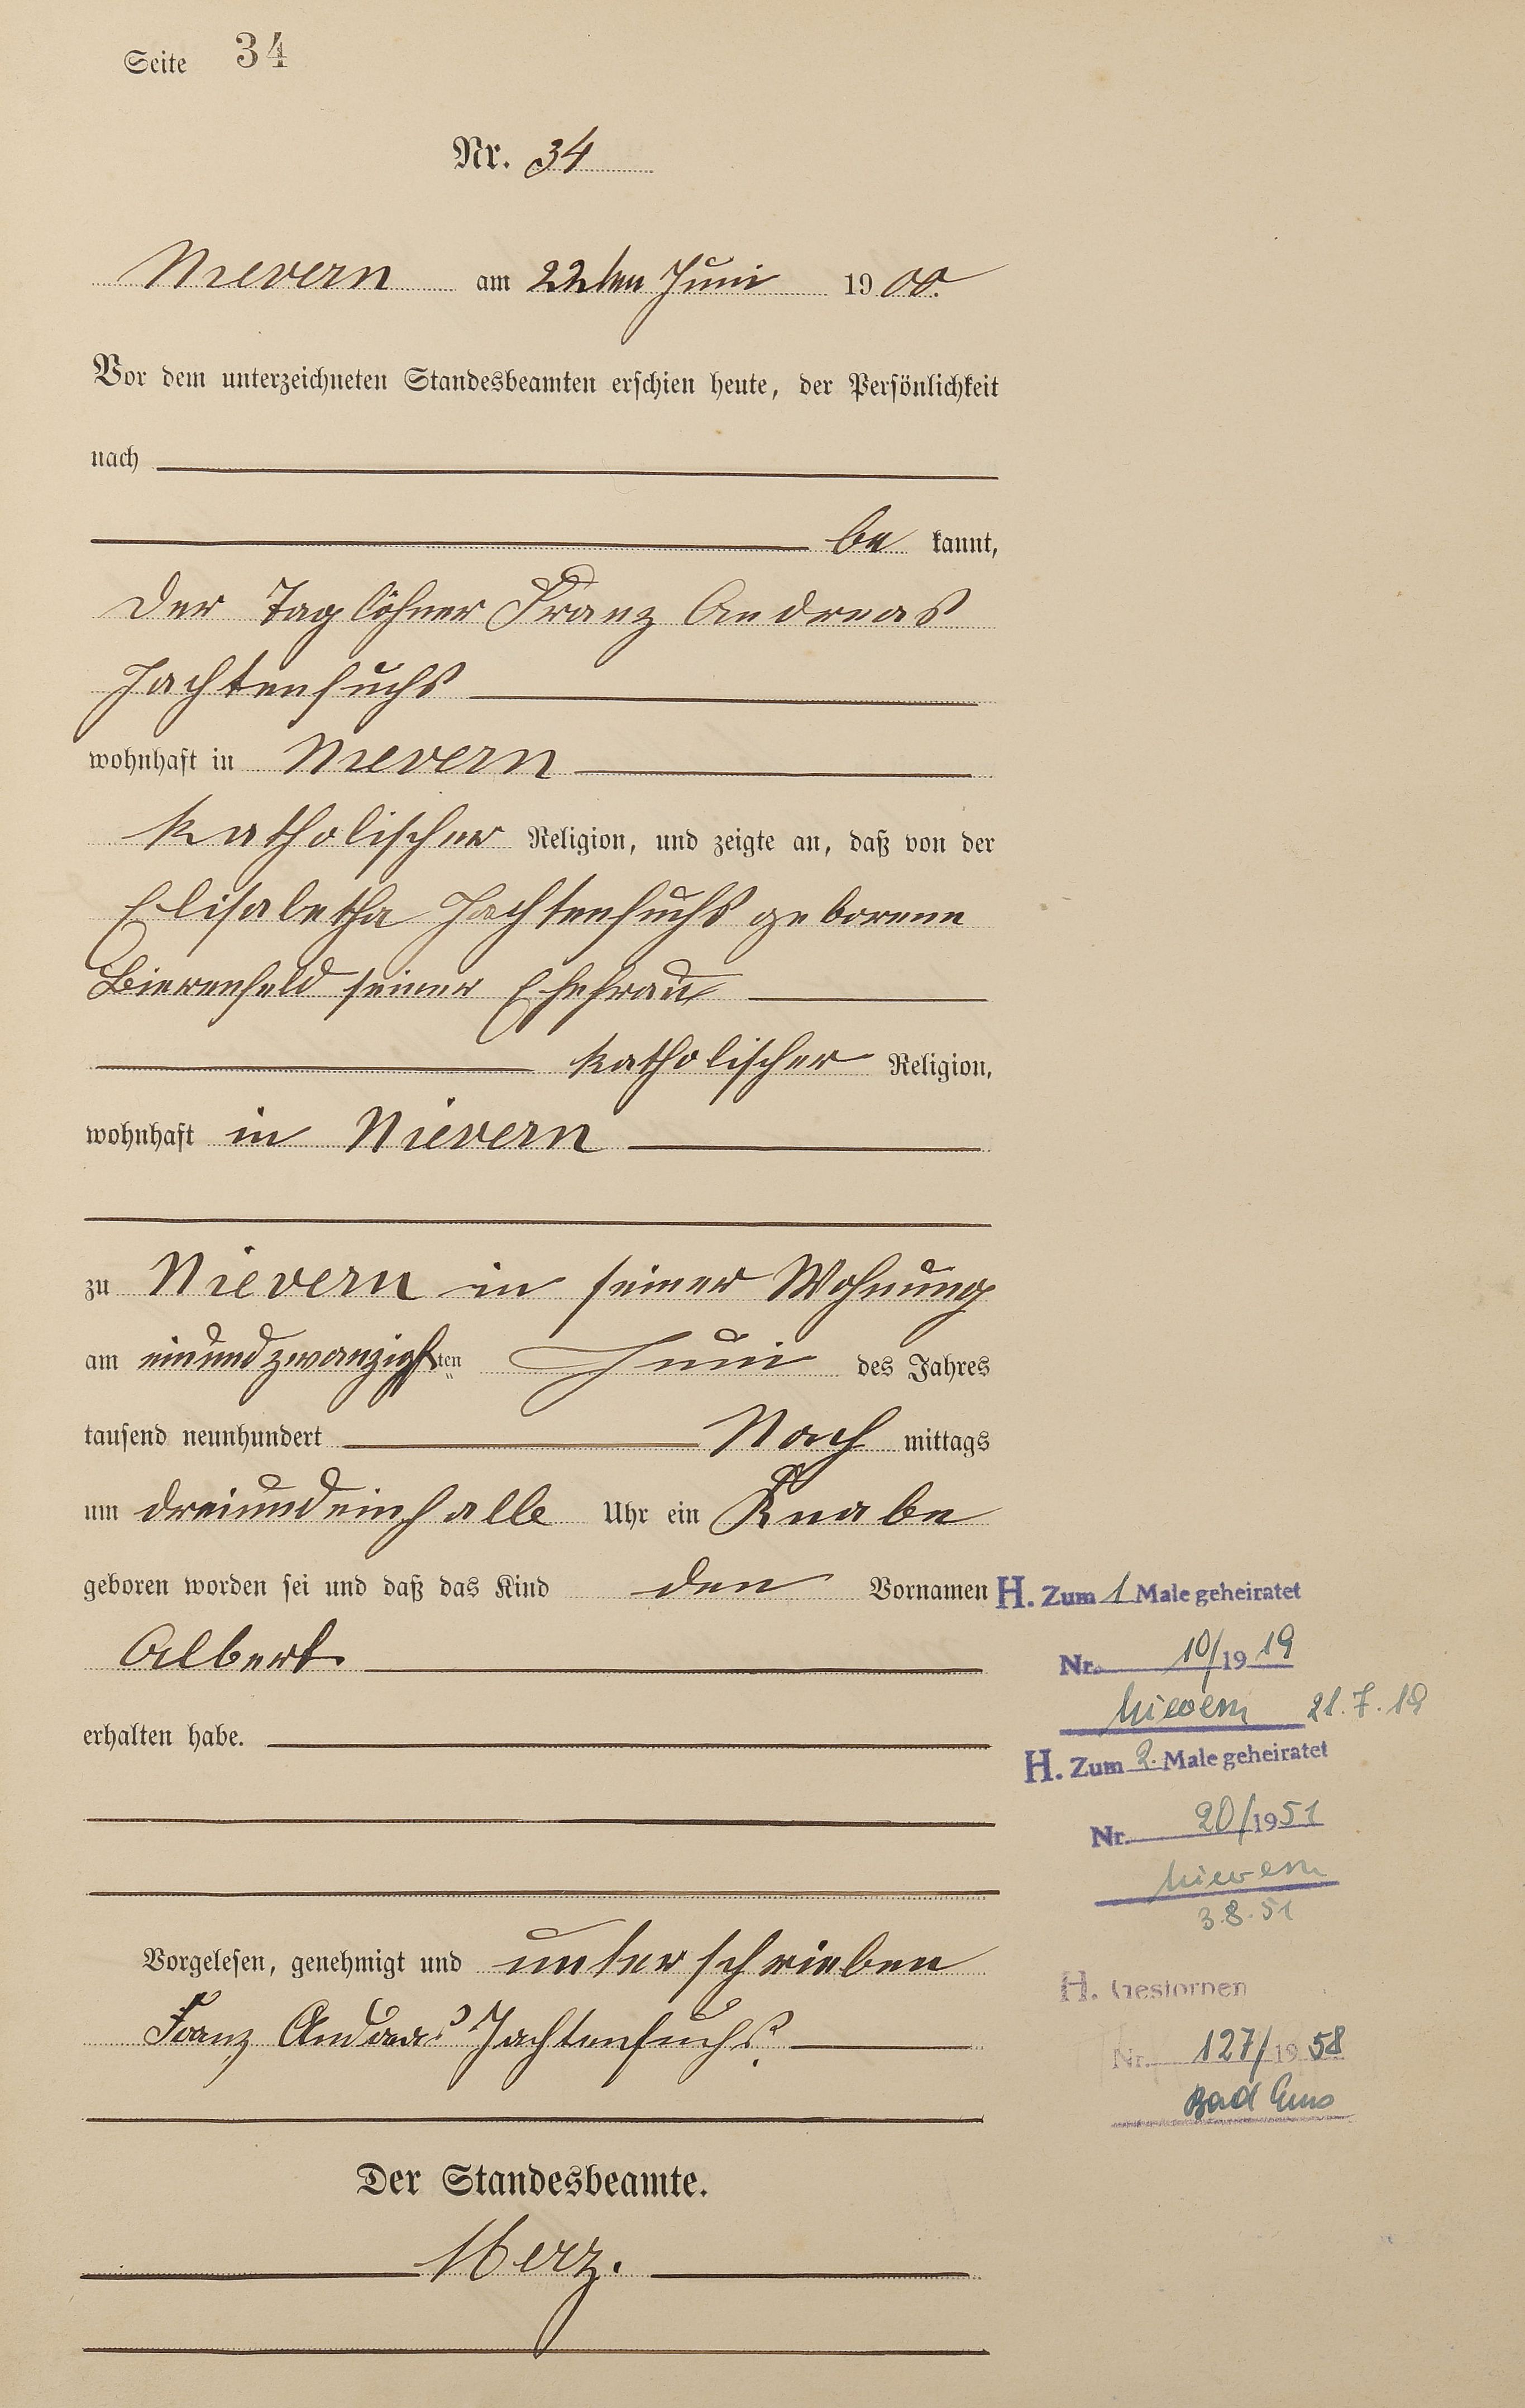 Seite 34
Nr. 34
Nievern am 22ten Juni 1900.
Vor dem unterzeichneten Standesbeamten erschien heute, der Persönlichkeit
nach
be kannt,
der Taglöhner Franz Andreas
Jachtenfuchs
wohnhaft in Nievern
katholischer Religion, und zeigte an, daß von der
Elisabetha Jachtenfuchs geborene
Bierenfeld seiner Ehefrau
katholischer Religion,
wohnhaft in Nievern
zu Nievern in seiner Wohnung
am einundzwanzigsten Juni des Jahres
tausend neunhundert Nach mittags
um dreiundeinhalb Uhr ein Knabe
geboren worden sei und daß das Kind den Vornamen
Albert
erhalten habe.
Vorgelesen, genehmigt und unterschrieben
Franz Andreas Jachtenfuchs.
Der Standesbeamte.
Merz.
H. Zum 1 Male geheiratet
Nr. 10/1919
Nievern 21.7.19
H. Zum 2. Male geheiratet
Nr. 20/1951
Nievern
3.8.51
H. Gestorben
Nr. 127/1958
Bad Ems